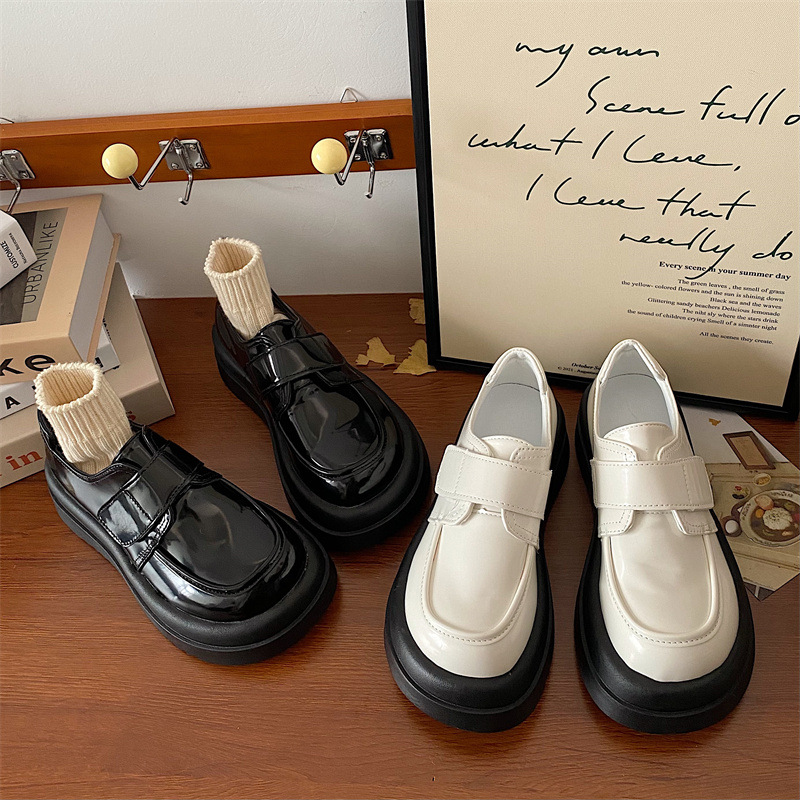 my own
Scene full o
what I leve,
I leve that
really do
Every scene in your summer day
The green leaves , the smell of grass
the yellow- colored flowers and the sun is shining down
Black sea and the waves
Glittering sandy beachers Delicious lemonade
The niht sly where the stars drink
the sound of children crying Smell of a simnter night
All the scenes they create.
October
© 2021
URBANLIKE
CUSTOMIZE
ke
in